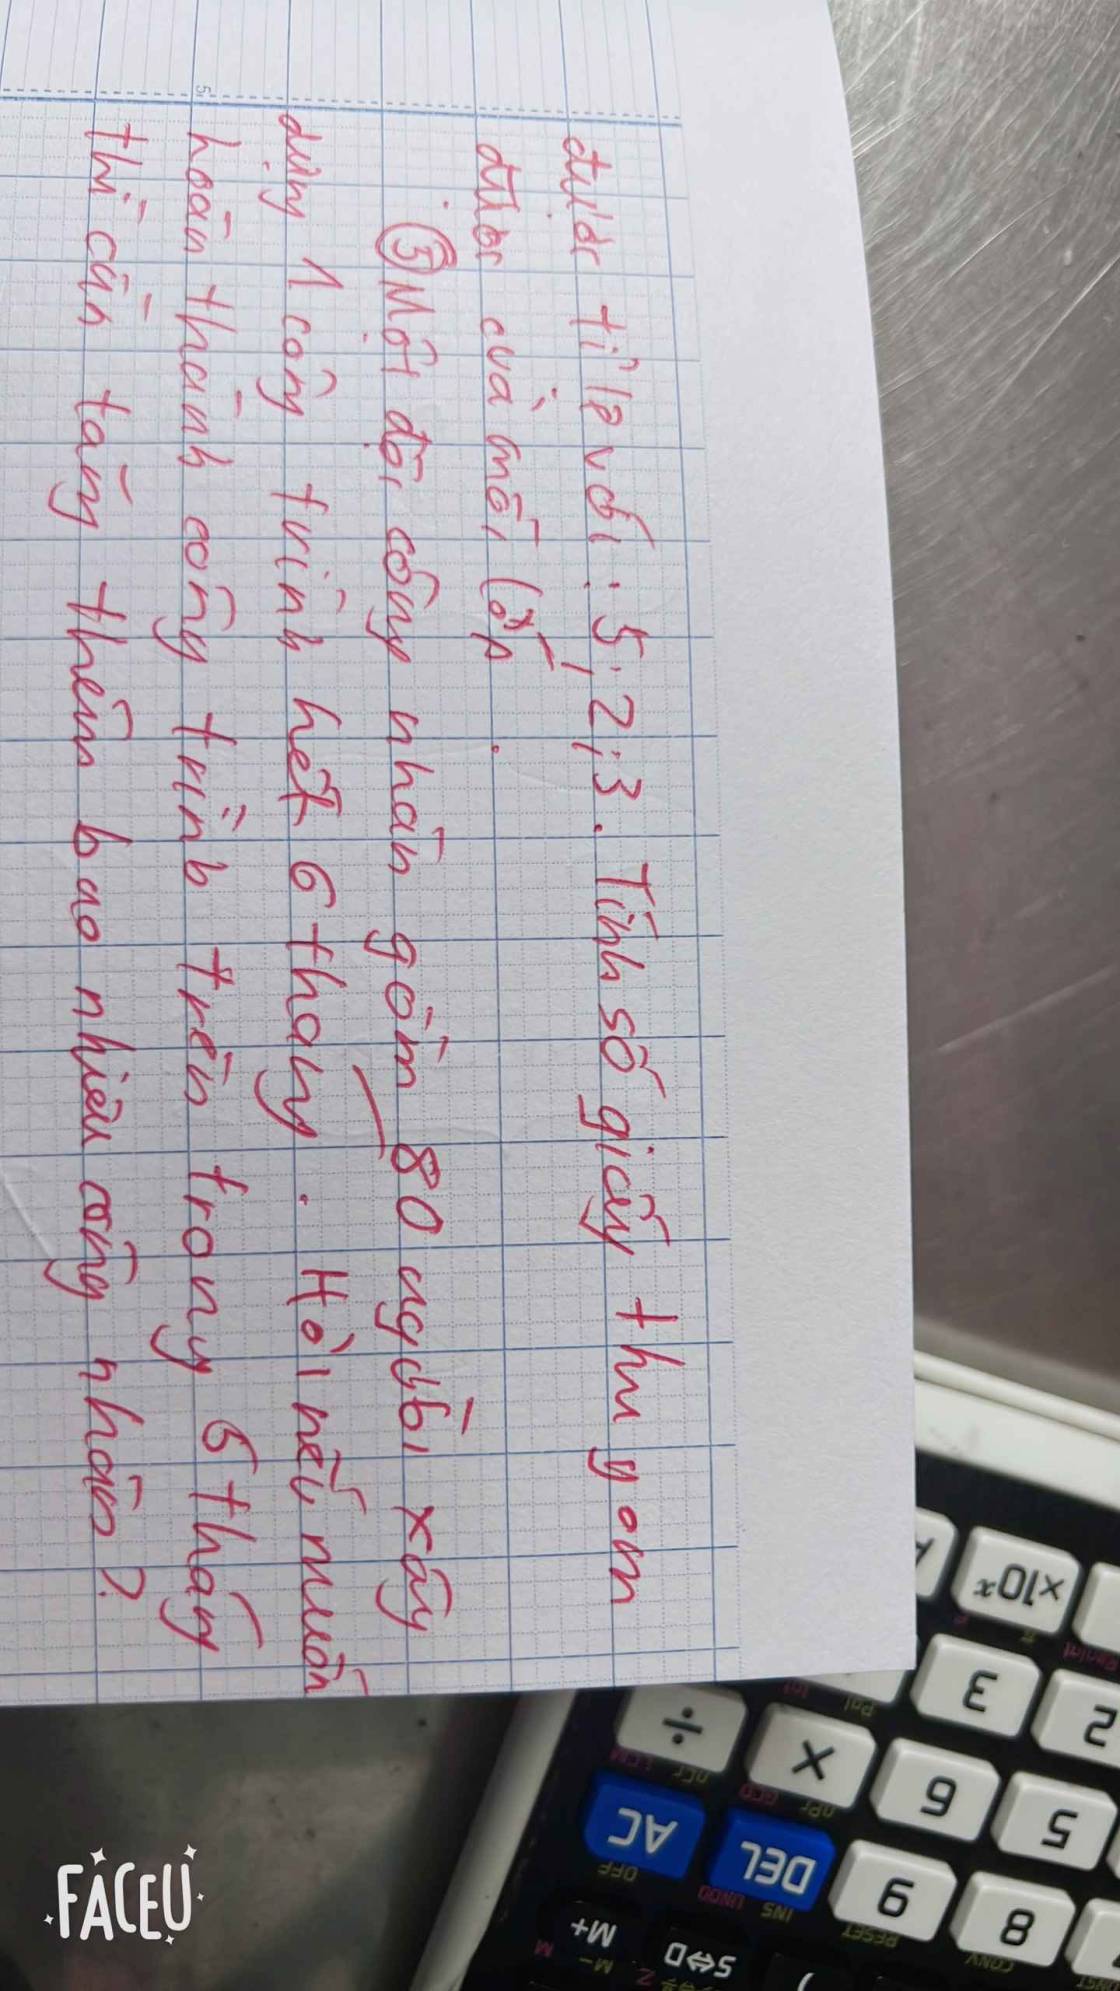 được tỉ lệ với : 5; 2; 3. Tính số giấy thu gom
được của mỗi lớp.
⑤ Một đội công nhân gồm 80 người xây
dựng 1 công trình hết 6 tháng. Hỏi nếu muốn
hoàn thành công trình trên trong 5 tháng
thì cần tăng thêm bao nhiêu công nhân?
×10ˣ
3
2
÷
×
6
5
AC
DEL
9
8
OFF
INS
UNDO
RESET
CONV
M+
M−
M
S⇔D
)
nPr
GCD
nCr
LCM
Pol
FACEU